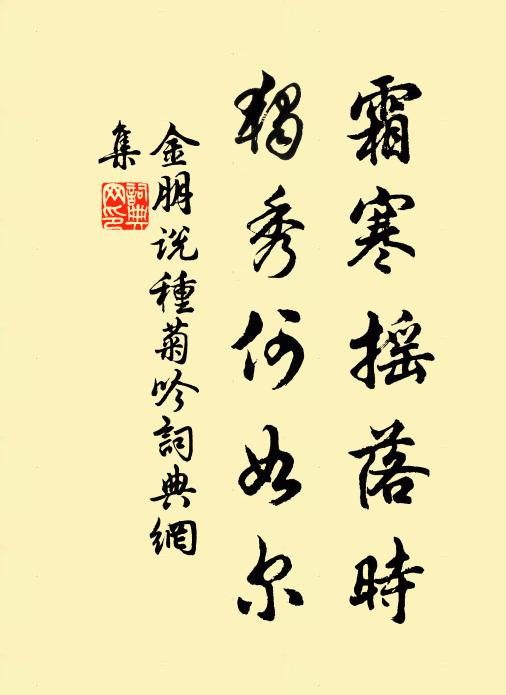 霜寒摇落時
独秀何如尔
金朋说種菊吟詞典網
集
詞典
网印